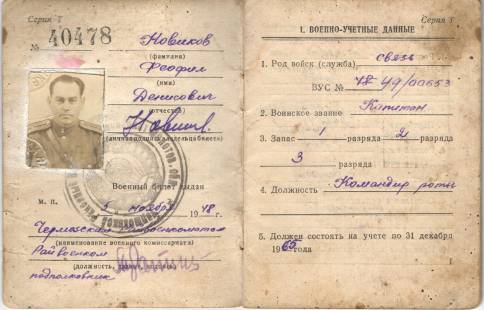 Серия Т
№ 40478
Новиков
(фамилия)
Феофил
(имя)
Денисович
(отчество)
(личная подпись владельца билета)
Военный билет выдан
м. п. 5 ноября 1948 г.
Райвоенкомат
(наименование военного комиссариата)
Райвоенком
подполковник
Серия Т
I. ВОЕННО-УЧЕТНЫЕ ДАННЫЕ
1. Род войск (служба) связь
ВУС №
2. Воинское звание Капитан
3. Запас 1 разряда 2
3 разряда
4. Должность Командир роты
5. Должен состоять на учете по 31 декабря
1965 года